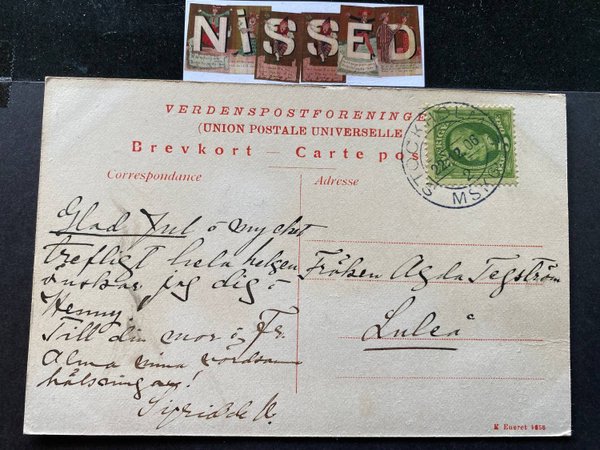 NISSED
VERDENSPOSTFORENINGE
(UNION POSTALE UNIVERSELLE
Brevkort — Carte pos
Correspondance
Adresse
STOCKHOL
22.12.06
Glad Jul o mycket
trefligt hela helgen
önskar jag dig o
Henny.
Till din mor o Fr.
Alma mina vördsam
hälsningar!
Fröken Agda Tegström
Luleå
E Eneret 1256